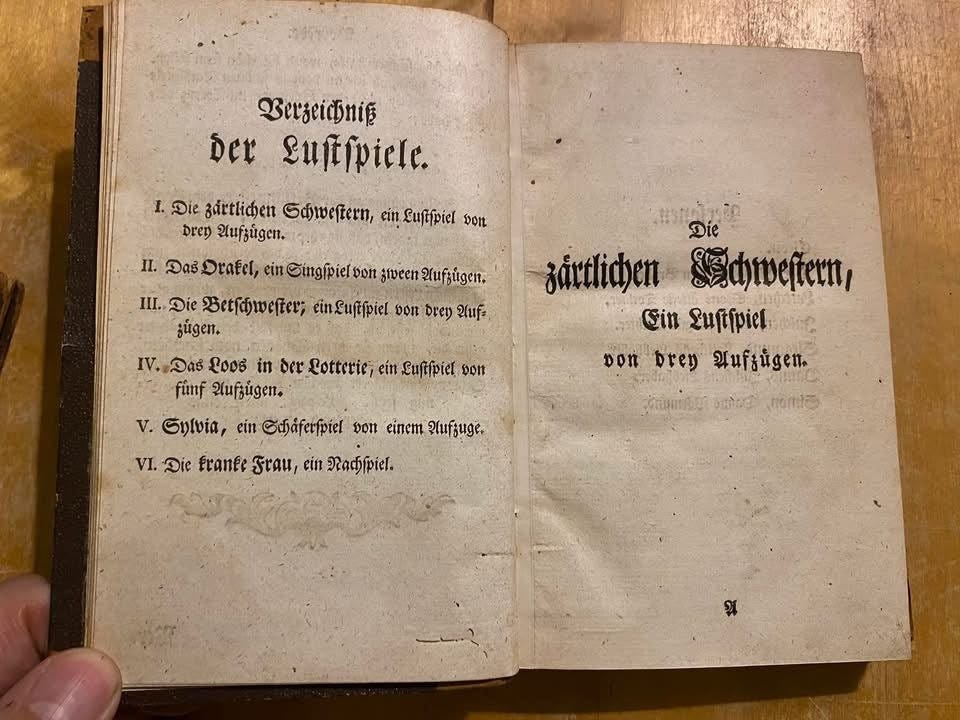 Verzeichniß
der Lustspiele.
I. Die zärtlichen Schwestern, ein Lustspiel von
drey Aufzügen.
II. Das Orakel, ein Singspiel von zween Aufzügen.
III. Die Betschwester, ein Lustspiel von drey Auf-
zügen.
IV. Das Loos in der Lotterie, ein Lustspiel von
fünf Aufzügen.
V. Sylvia, ein Schäferspiel von einem Aufzuge.
VI. Die kranke Frau, ein Nachspiel.
Die
zärtlichen Schwestern,
Ein Lustspiel
von drey Aufzügen.
A